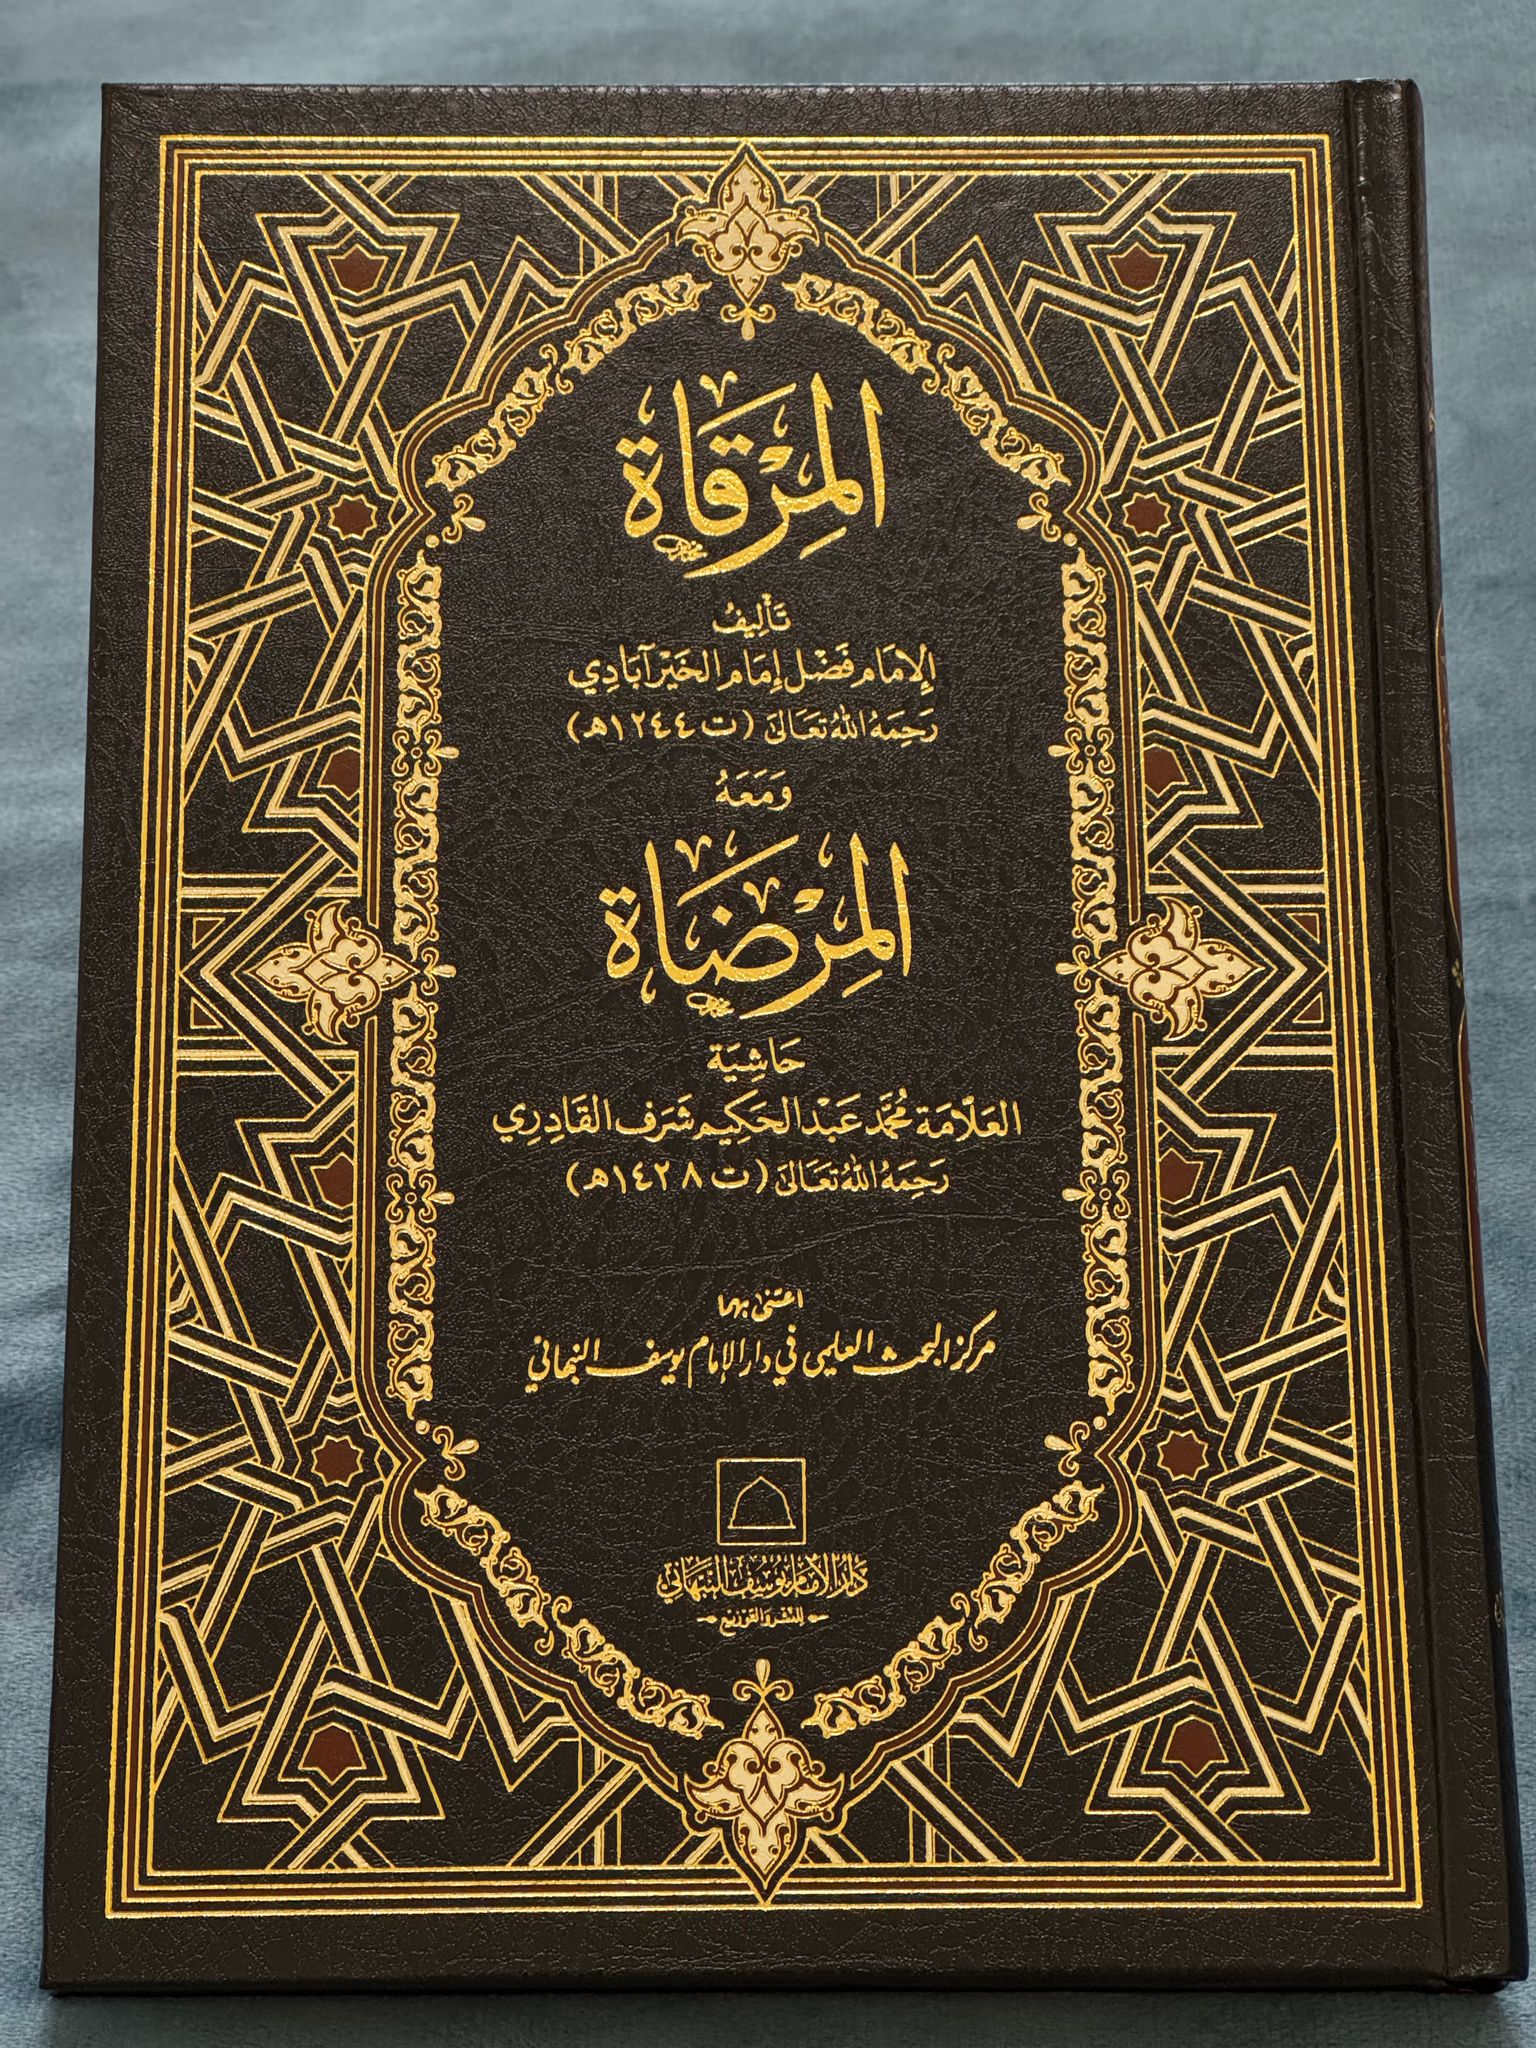 المِرْقَاة
تَأْلِيفُ
الإِمَام فَضْل إِمَام الخَيْرآبَادِي
رَحِمَهُ اللهُ تَعَالَى (ت ١٢٤٤هـ)
وَمَعَهُ
المِرْضَاة
حَاشِيَة
العَلَّامَة مُحَمَّد عَبْد الحَكِيم شَرَف القَادِرِي
رَحِمَهُ اللهُ تَعَالَى (ت ١٤٢٨هـ)
اعتنى بهما
مركز البحث العلمي في دار الإمام يوسف النبهاني
دَارُ الإِمَام يُوسُف النَّبْهَانِي
للنشر والتوزيع